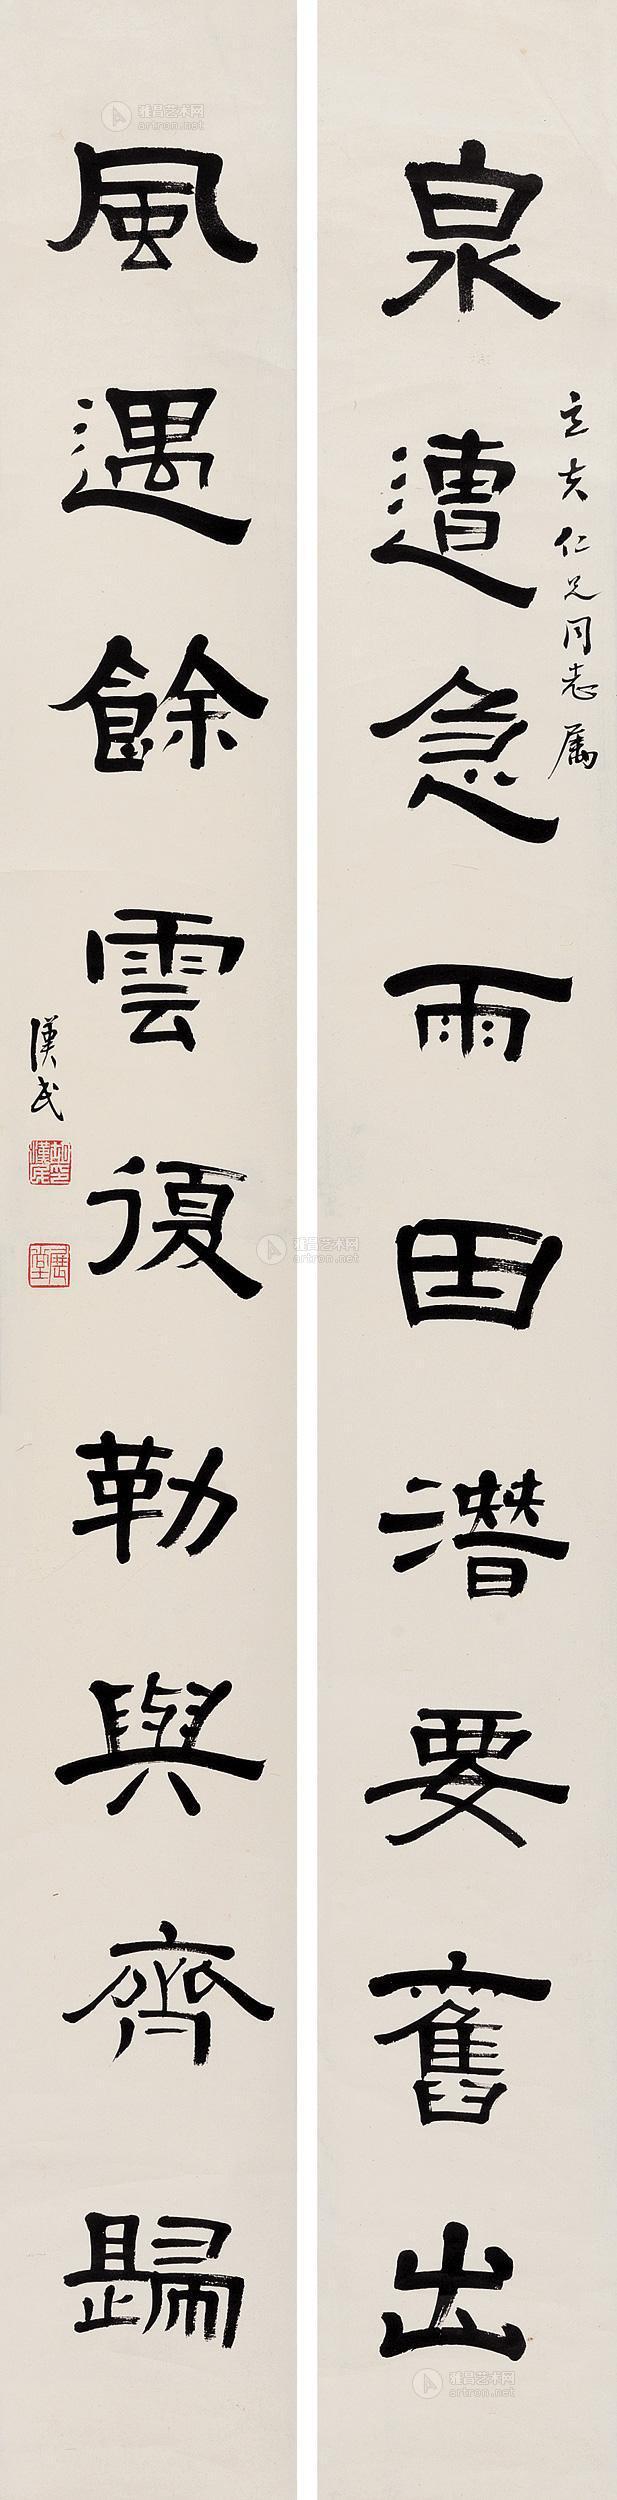 立夫仁兄同志属
泉遭急雨因潛要舊出
風遇餘雲復勒與齊歸
漢民
胡漢民印
展堂
雅昌艺术网
artron.net
雅昌艺术网
artron.net
雅昌艺术网
artron.net